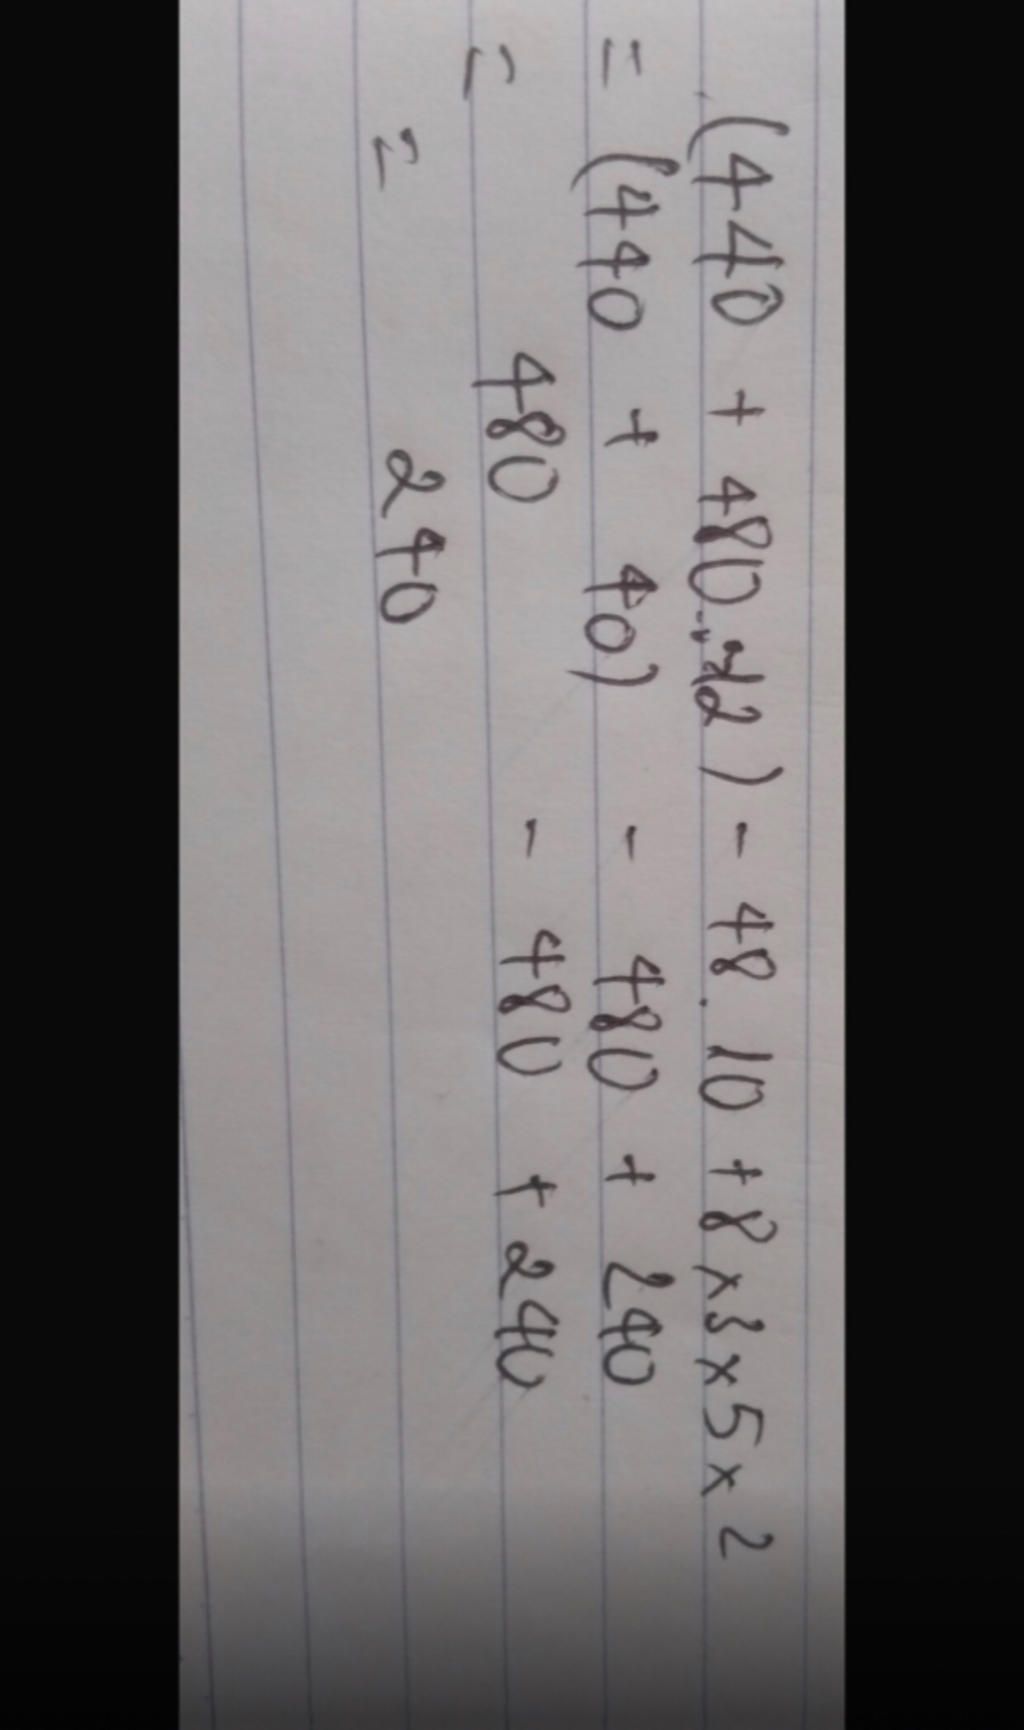 (440 + 480 ÷ 12) - 48.10 + 8 x 3 x 5 x 2
= (440 + 40) - 480 + 240
= 480 - 480 + 240
= 240